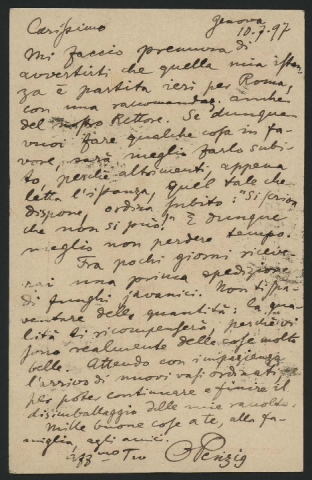 Genova
10.7.97
Carissimo
Mi faccio premura di
avvertirti che quella mia istan-
za è partita ieri per Roma,
con una raccomandaz. anche
del nostro Rettore. Se dunque
vuoi fare qualche cosa in fa-
vore, sarà meglio farlo subi-
to, perchè altrimenti, appena
letta l'istanza, quel tale che
dispone, ordina subito: "Si scriva
che non si può." È dunque
meglio non perdere tempo.
Fra pochi giorni riceve-
rai una prima spedizione
di funghi javanici. Non ti spa-
ventare della quantità: la qua-
lità ti ricompenserà, perchè vi
sono realmente delle cose molto
belle. Attendo con impazienza
l'arrivo di nuovi vasi ordinati
per poter continuare e finire il
disimballaggio delle mie raccolte.
Mille buone cose a te, alla fa-
miglia, agli amici.
aff.mo Tuo
O Penzig